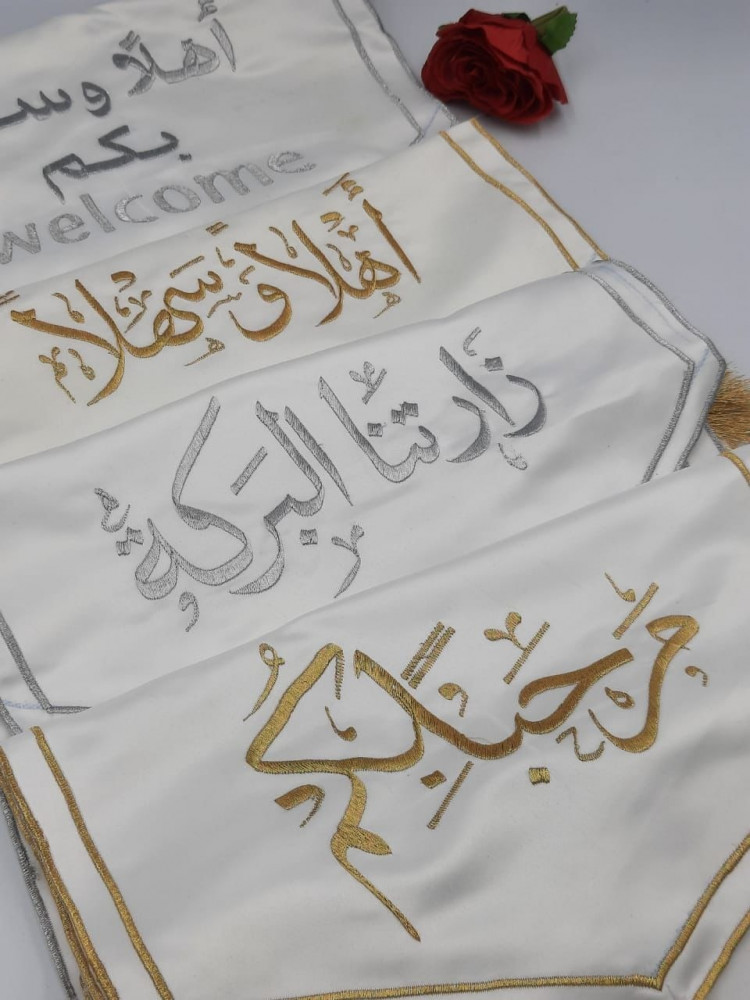 أهلاً وسـ
بكم
welcome
أَهْلاً وَ سَهْلاً
زارتنا البركة
مَرْحَباً بِكُم